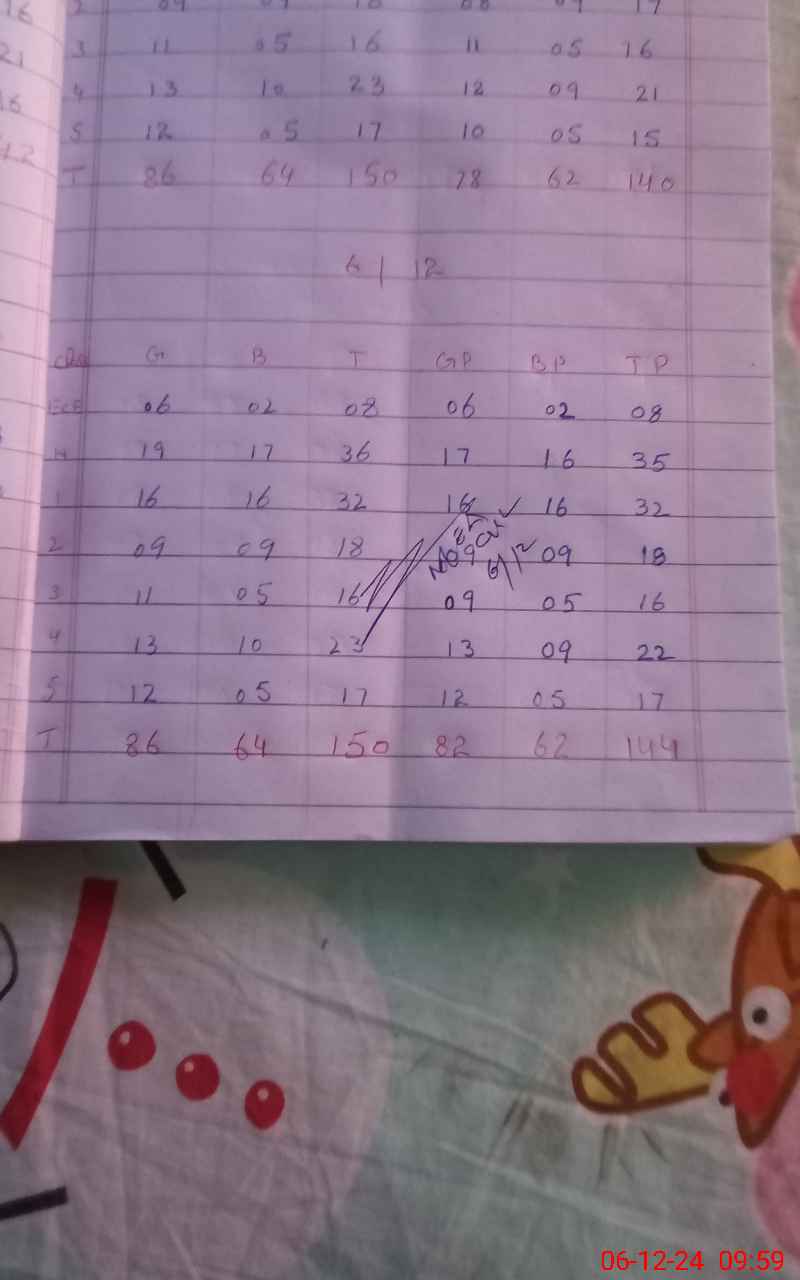 16 2 09 09 18 08 09 17
21 3 11 05 16 11 05 16
16 4 13 10 23 12 09 21
5 12 05 17 10 05 15
T 86 64 150 78 62 140
6 | 12
G B T GP BP TP
ECE 06 02 08 06 02 08
N 19 17 36 17 16 35
1 16 16 32 16 ✓ 16 32
2 09 09 18 09 6/12 09 18
3 11 05 16 09 05 16
4 13 10 23 13 09 22
5 12 05 17 12 05 17
T 86 64 150 82 62 144
06-12-24 09:59